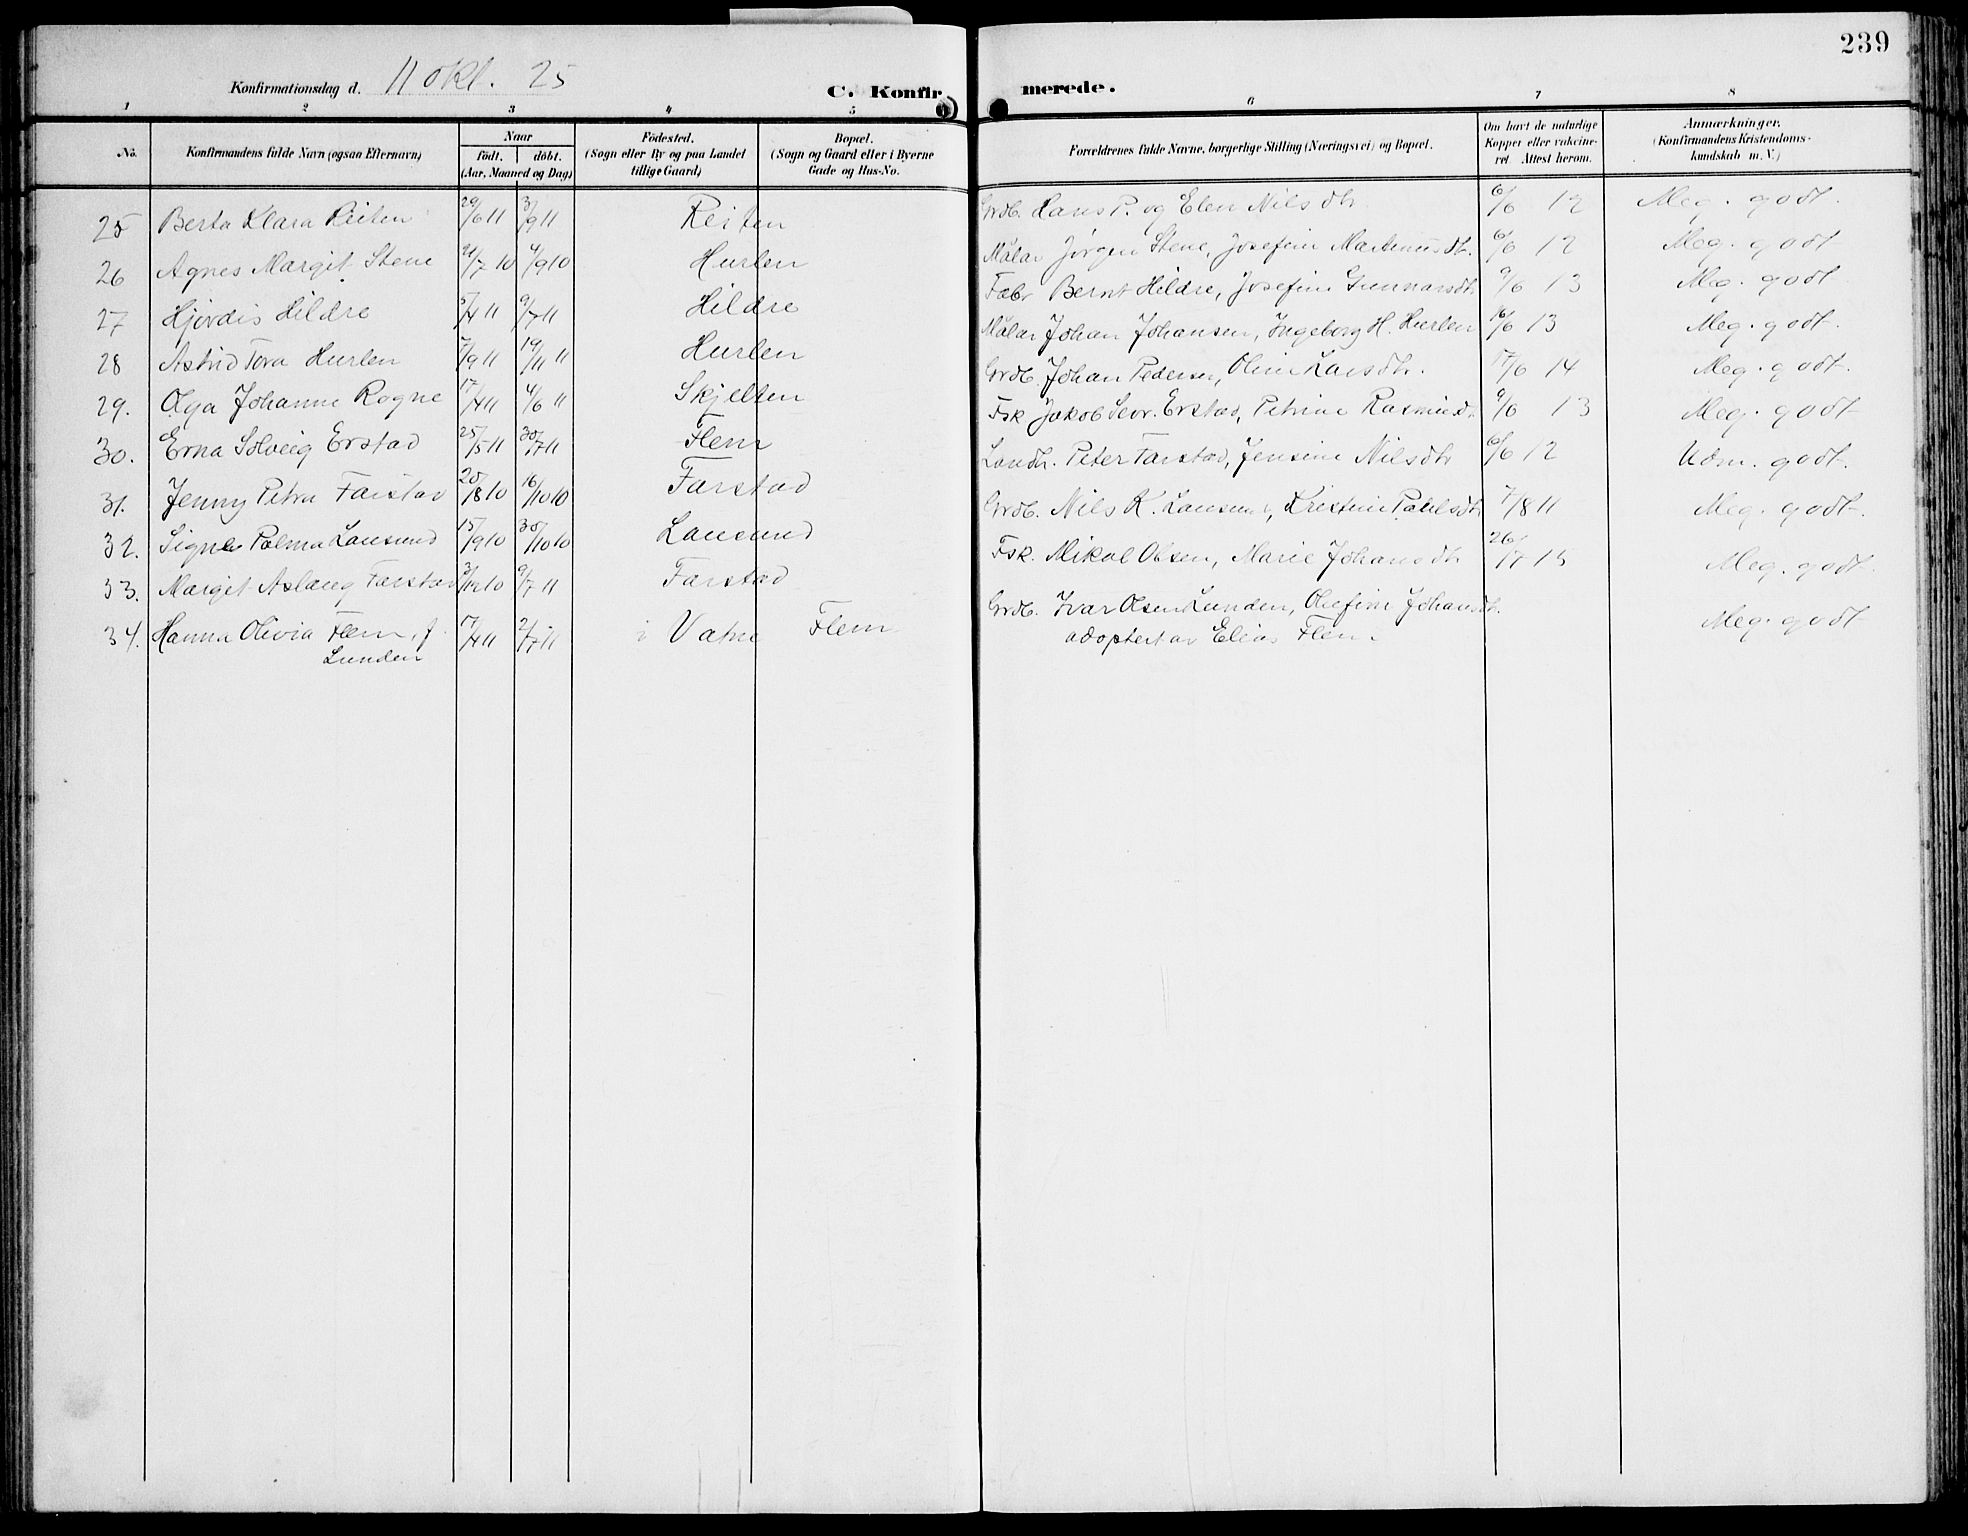 239
Konfirmationsdag d. 11 okt. 25 C. Konfirmerede.
1 2 3 4 5 6 7 8
No. Konfirmandens fulde Navn (ogsaa Efternavn) Naar födt. döbt. (Aar, Maaned og Dag) Födested. (Sogn eller By og paa Landet tillige Gaard) Bopæl. (Sogn og Gaard eller i Byerne Gade og Hus-No. Forældrenes fulde Navne, borgerlige Stilling (Næringsvei) og Bopæl. Om havt de naturlige Kopper eller vaccineret. Attest herom. Anmærkninger. (Konfirmandens Kristendomskundskab m. V.)
25 Berta Klara Reiten 29/6 11 3/9 11 Reiten Grdb. Hans P. og Elen Nilsdtr. 6/6 12 Meg. godt.
26 Agnes Margit Stene 21/7 10 4/9 10 Hurlen Målar Jørgen Stene, Josefine Martinusdt. 6/6 12 Meg. godt
27 Hjørdis Hildre 5/4 11 9/7 11 Hildre Fabr Bernt Hildre, Josefine Gunnarsdtr 9/6 13 Meg. godt
28 Astrid Tora Hurlen 7/9 11 19/11 11 Hurlen Målar Johan Johansen, Ingeborg H. Hurlen 16/6 13 Meg. godt.
29. Olga Johanne Rogne 17/4 11 4/6 11 Skjelten Grdb. Johan Pedersen, Oline Larsdtr. 17/6 14 Meg. godt.
30. Erna Solveig Erstad 25/5 11 30/7 11 Flem Fsk Jakob Sevr. Erstad, Petrine Rasmusdt. 9/6 13 Meg. godt
31. Jenny Petra Farstad 20/8 10 16/10 10 Farstad Landh. Peter Farstad, Jensine Nilsdtr 6/6 12 Udm. godt.
32. Signe Palma Lausund 15/9 10 30/10 10 Lausund Grdb. Nils K. Lausund, Kristine Pahlsdtr 7/8 11 Meg. godt.
33. Margit Aslaug Farstad 3/12 10 9/7 11 Farstad Fsk. Mikal Olsen, Marie Johansdtr 26/7 15 Meg. godt.
34. Hanna Olivia Flem, f. 17/4 11 2/7 11 i Vatne Flem Grdb. Ivar Olsen Lunden, Olufine Johansdtr. Meg. godt
Lunden adoptert av Elias Flem